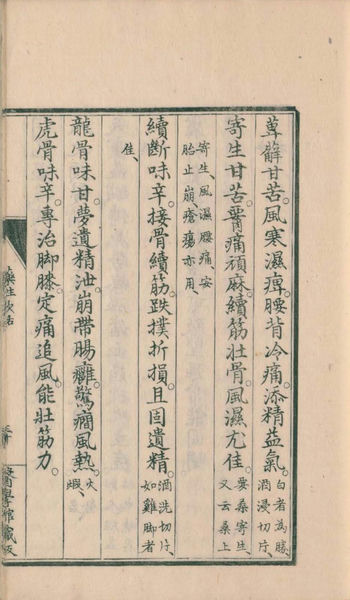 萆薢甘苦。風寒濕痺。腰背冷痛。添精益氣。白者為勝、酒浸切片、
寄生甘苦。腰痛頑麻。續筋壯骨。風濕尤佳。要桑寄生、又云桑上
寄生、風濕腰痛、安胎止崩、瘡瘍亦用、
續斷味辛。接骨續筋。跌撲折損。且固遺精。酒洗切片、如雞脚者
佳、
龍骨味甘。夢遺精泄。崩帶腸癰。驚癇風熱。火煅、
虎骨味辛。專治脚膝。定痛追風。能壯筋力。
醫學館藏板